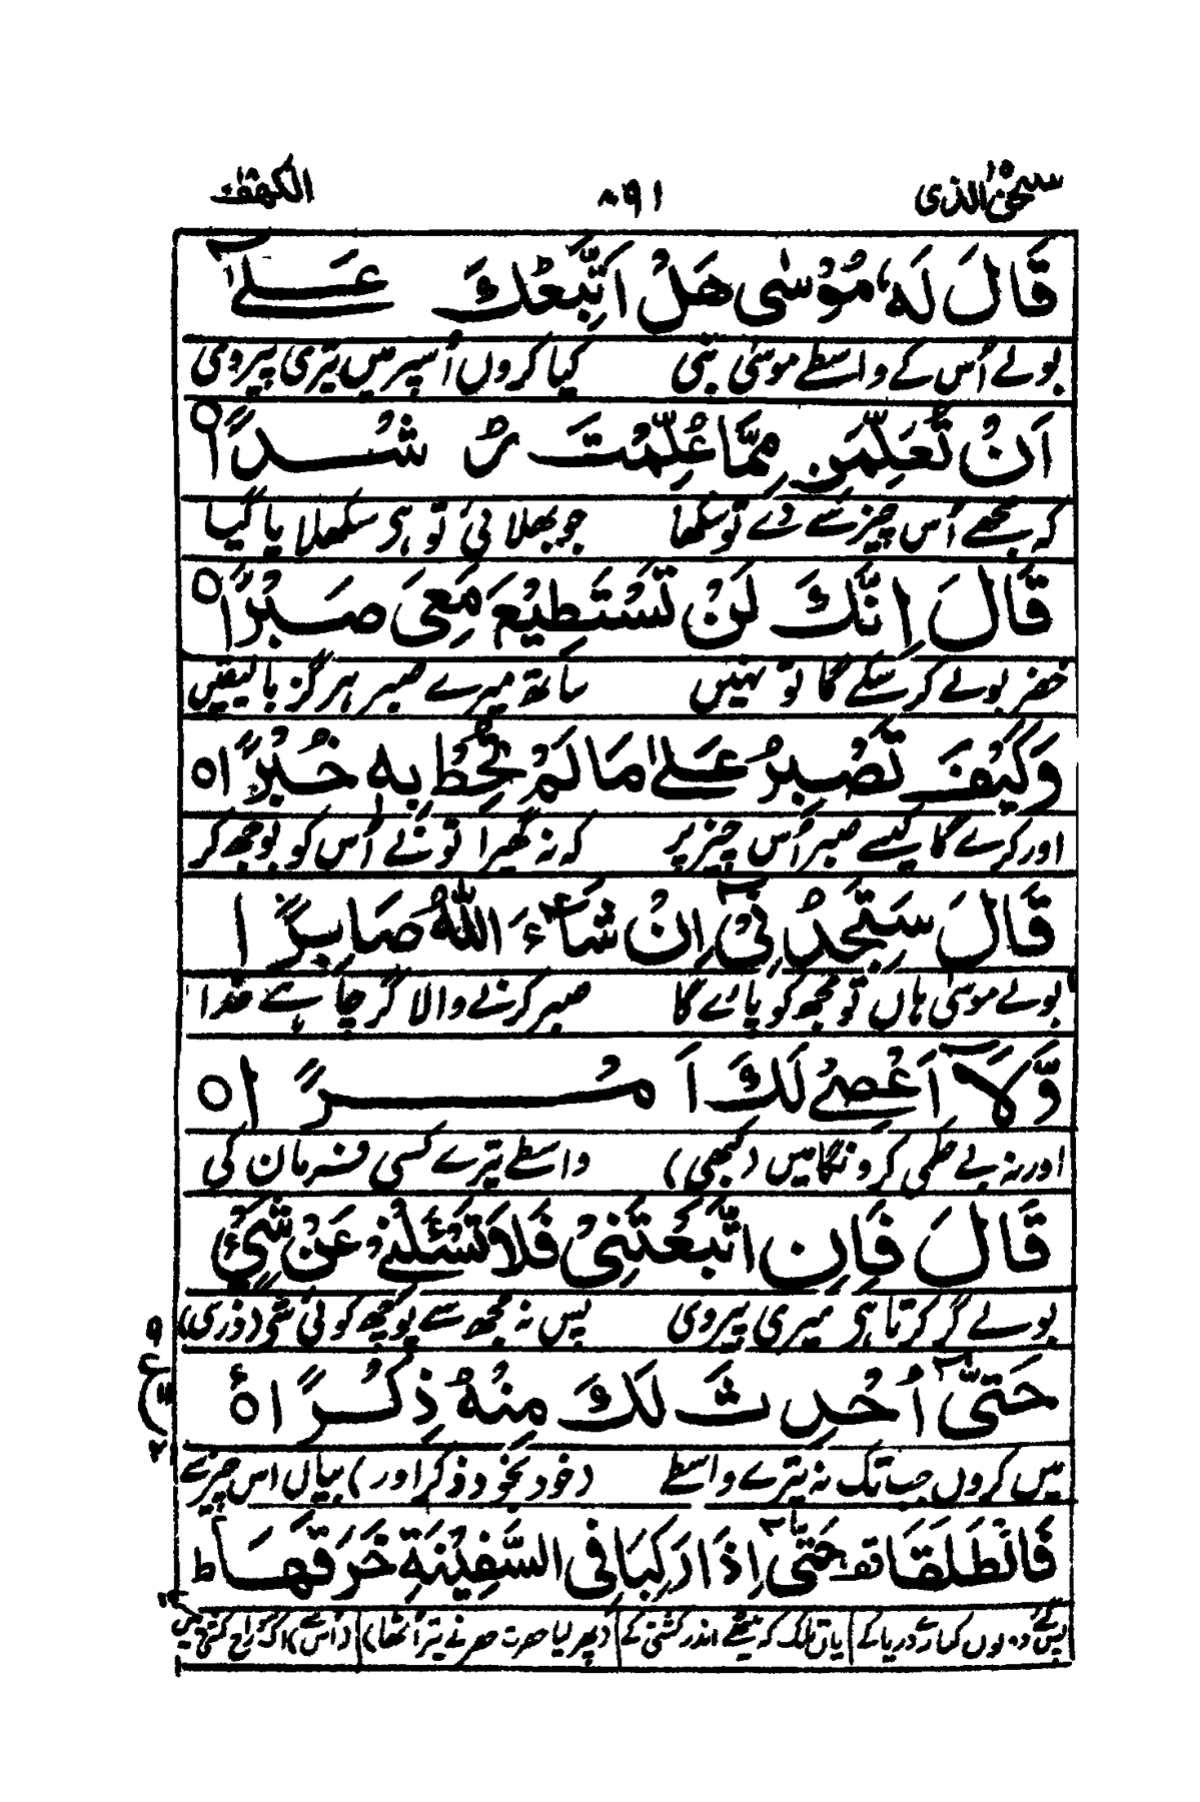 سبحٰن الذی ۱۵ ۸۹۱ الکهف ۱۸
قَالَ لَهٗ مُوْسٰی هَلْ اَتَّبِعُكَ عَلٰۤی
بولے اُس کے واسطے موسیٰ نبی کیا کروں اُسپر میں تیری پیروی
اَنْ تُعَلِّمَنِ مِمَّا عُلِّمْتَ رُشْدًا ○
کہ مجھے اُس چیز سے دے تو سکھا جو بھلائی تو ہی سکھلایا گیا
قَالَ اِنَّكَ لَنْ تَسْتَطِیْعَ مَعِیَ صَبْرًا ○
خضر بولے کر سکے گا تو نہیں ساتھ میرے صبر ہرگز بالیقیں
وَكَیْفَ تَصْبِرُ عَلٰی مَا لَمْ تُحِطْ بِهٖ خُبْرًا ○
اور کرے گا کیسے صبر اُس چیز پر کہ نہ گھیرا تو نے اُس کو بوجھ کر
قَالَ سَتَجِدُنِیْۤ اِنْ شَآءَ اللّٰهُ صَابِرًا
بولے موسیٰ ہاں تو مجھ کو پائے گا صبر کرنے والا گر چاہے خدا
وَّلَاۤ اَعْصِیْ لَكَ اَمْرًا ○
اور نہ بے حکمی کرونگا میں (کبھی) واسطے تیرے کسی فرمان کی
قَالَ فَاِنِ اتَّبَعْتَنِیْ فَلَا تَسْـَٔلْنِیْ عَنْ شَیْءٍ
بولے گر کرتا ہی میری پیروی پس نہ مجھ سے پوچھ کوئی شی (ذری)
حَتّٰۤی اُحْدِثَ لَكَ مِنْهُ ذِكْرًا ○
میں کروں جب تک نہ تیرے واسطے (خود بخود ذکر اور) بیاں اس چیز سے
فَانْطَلَقَا حَتّٰۤی اِذَا رَكِبَا فِی السَّفِیْنَةِ خَرَقَهَا ط
کنارے دریا کے یاں تلک کہ بیٹھے اندر کشتی کے